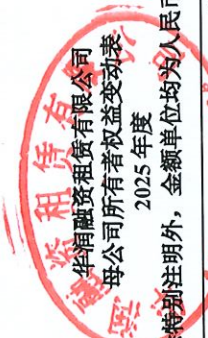 华润融资租赁有限公司
母公司所有者权益变动表
2025年度
特别注明外，金额单位均为人民币
租赁有